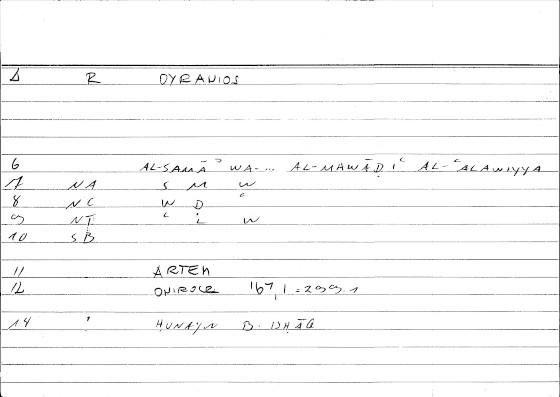 Δ R OYRANIOS
6 AL-SAMĀʾ WA-... AL-MAWĀḌIʿ AL-ʿALAWIYYA
7 NA S M W
8 NC W Ḍ ʿ
9 NT ʿ L W
10 SB
11 ARTEM
12 ONIROCR 167,1 = 299.1
14 ' ḤUNAYN B. ISḤĀQ